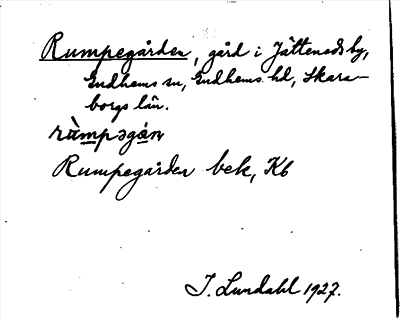 Rumpegården, gård i Jättenedsby,
Gudhems sn, Gudhems hd, Skara-
borgs län.
ràmpəgán
Rumpegården bek, Kb
I. Lundahl 1927.